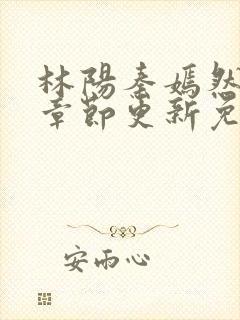 林陽秦嫣然
章節更新免
安雨心